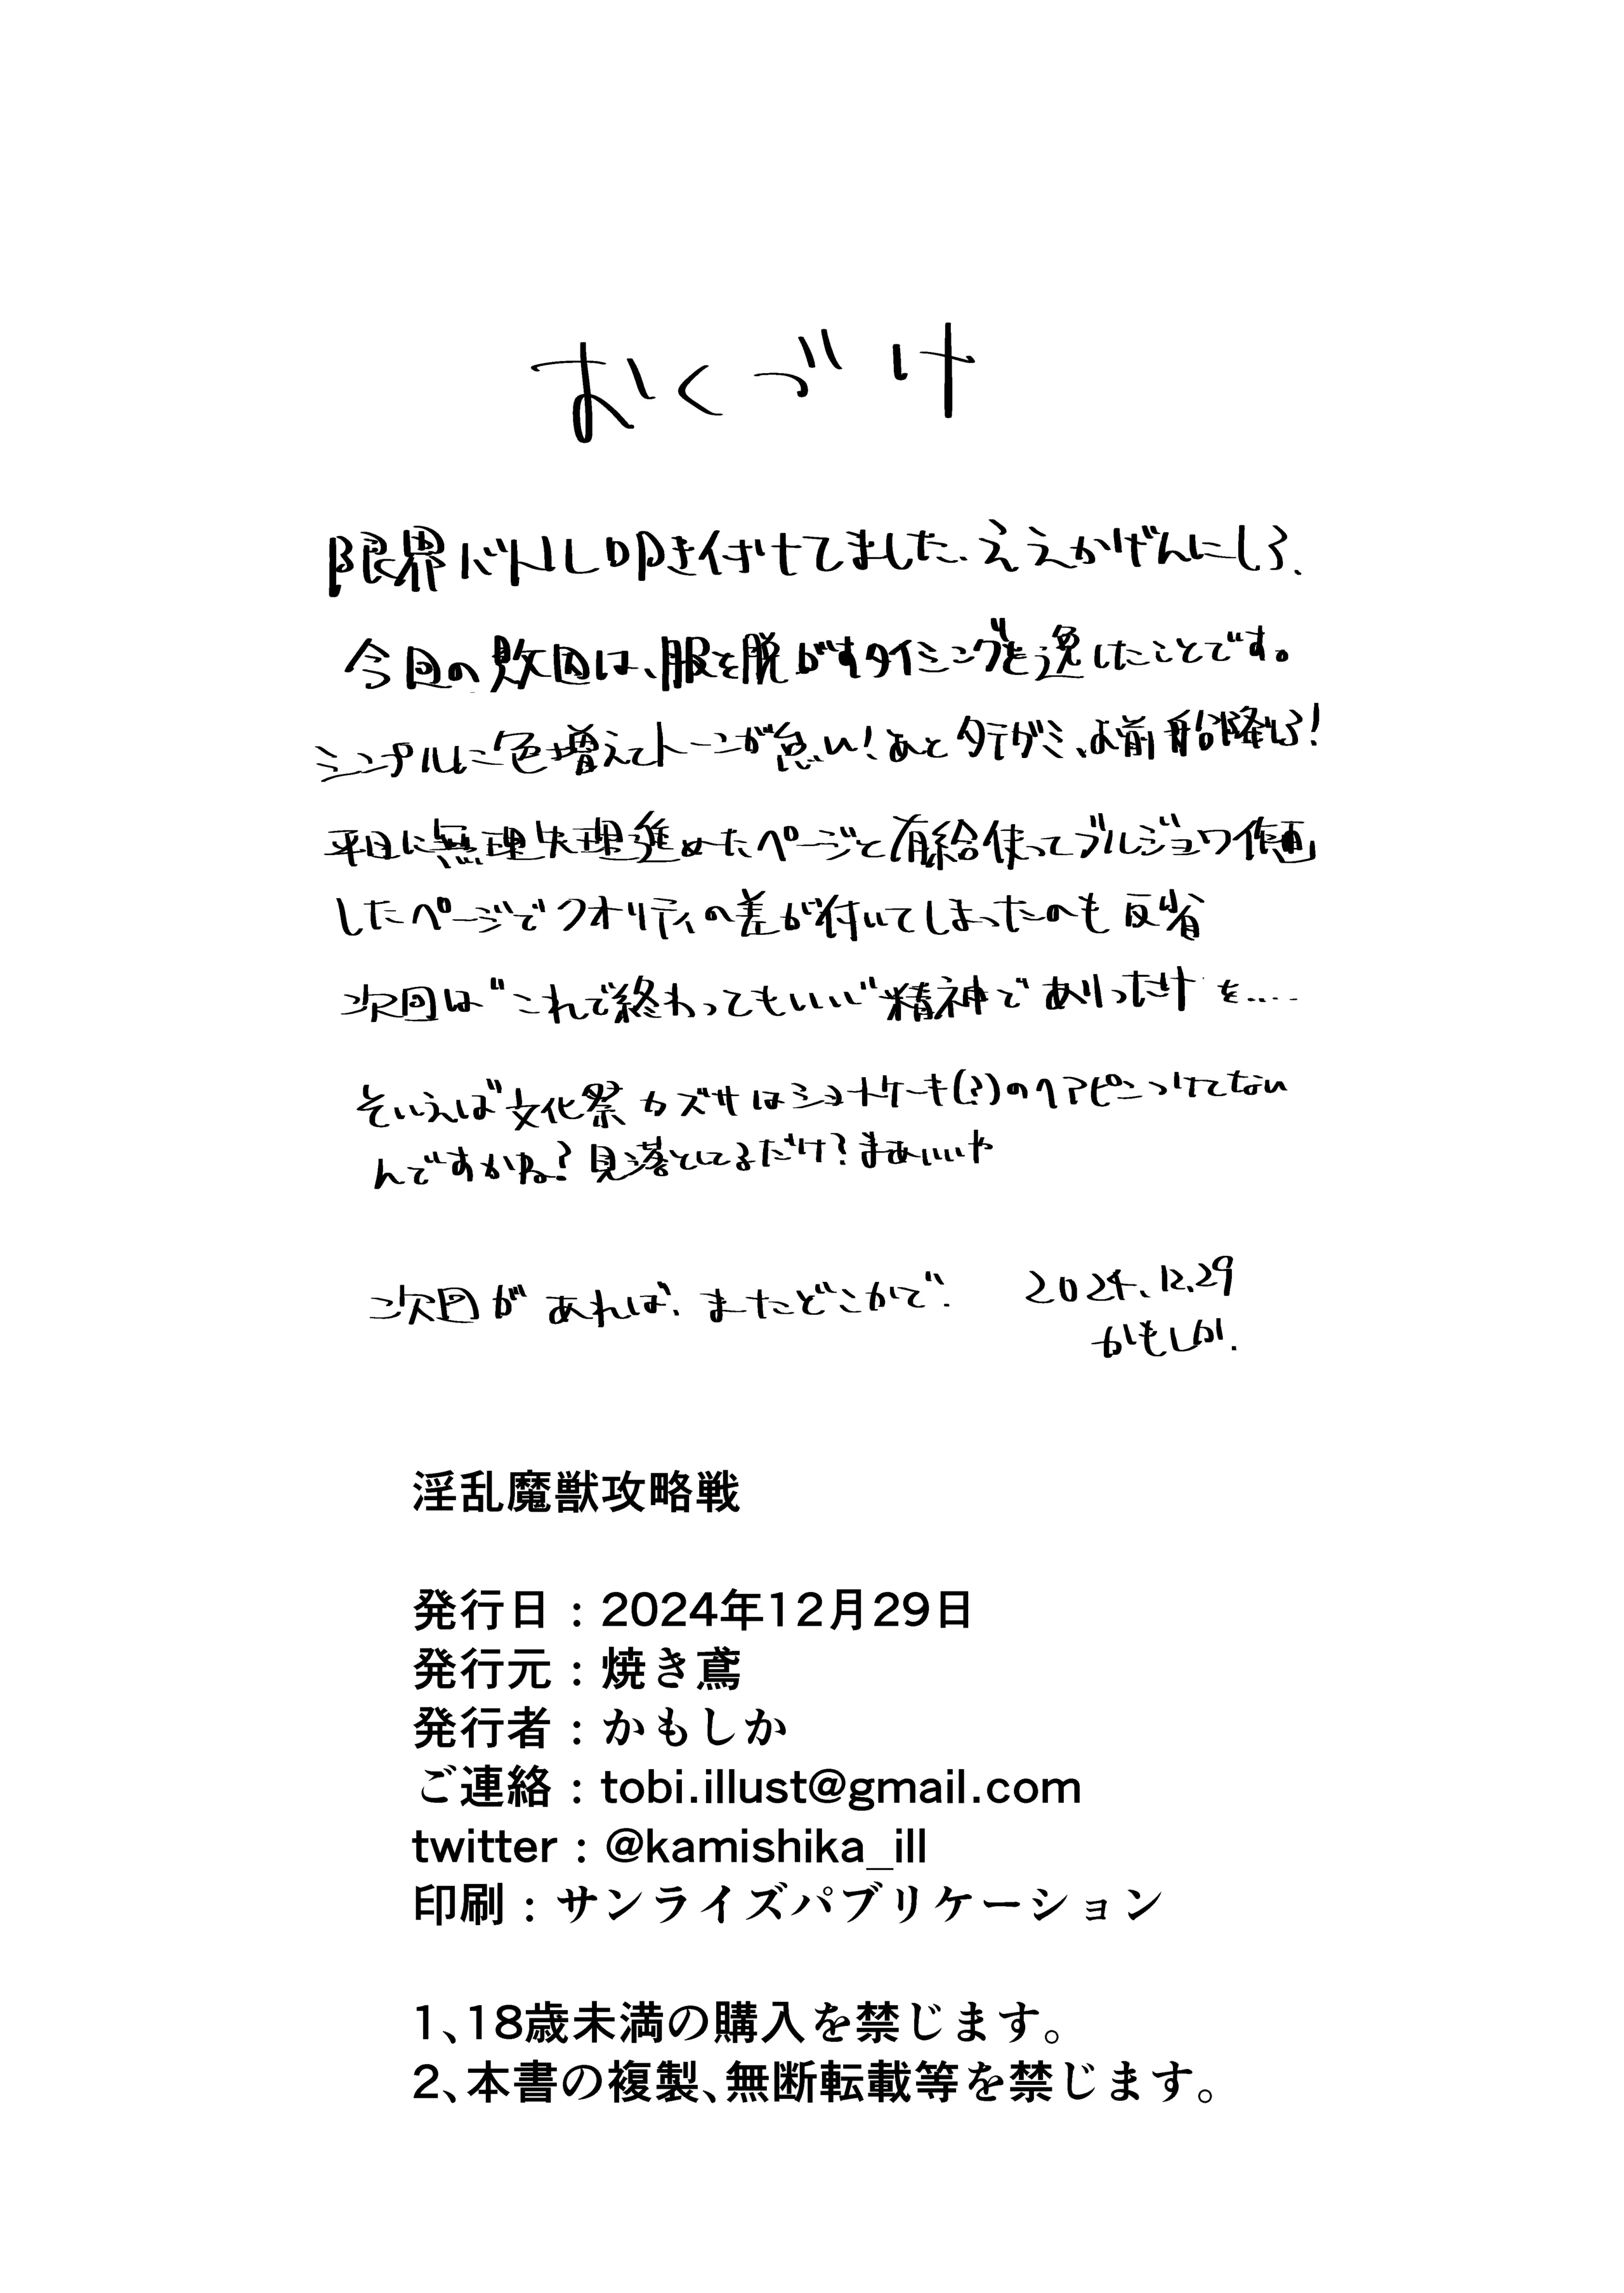 おくづけ
限界バトル叩き付けてました.ええかげんにしろ.
今回の敗因は、服を脱がすタイミングを逸したことです。
シンプルに色増えてトーンが怠い!あとタテグミ、お前船降りろ!
平日に無理矢理進めたページと有給使ってブルジョワ作画
したページでクオリティの差が付いてしまったのも反省
次回は"これで終わってもいい"精神でありったけを……
そういえば文化祭カズサはショートケーキ(?)のヘアピンつけてない
んですかね?見落としてるだけ?まあいいや
次回があれば.またどこかで.
2024.12.29
かもしか.
淫乱魔獣攻略戦
発行日:2024年12月29日
発行元:焼き鳶
発行者:かもしか
ご連絡:tobi.illust@gmail.com
twitter:@kamishika_ill
印刷:サンライズパブリケーション
1、18歳未満の購入を禁じます。
2、本書の複製、無断転載等を禁じます。